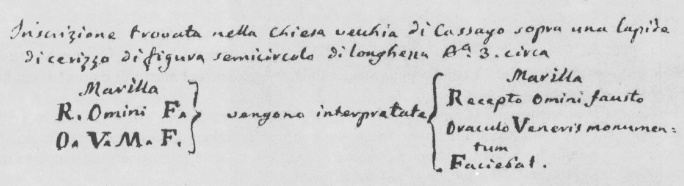 Inscrizione trovata nella Chiesa vecchia di Cassago sopra una lapide
di cerizzo di figura semicircolo di longhezza Ba. 3. circa
Marilla
R. Omini Fa
Oa Va Ma F.
vengono interpretate
Marilla
Recepto omini fausto
Oraculo Veneris monumen=
tum
Faciebat.